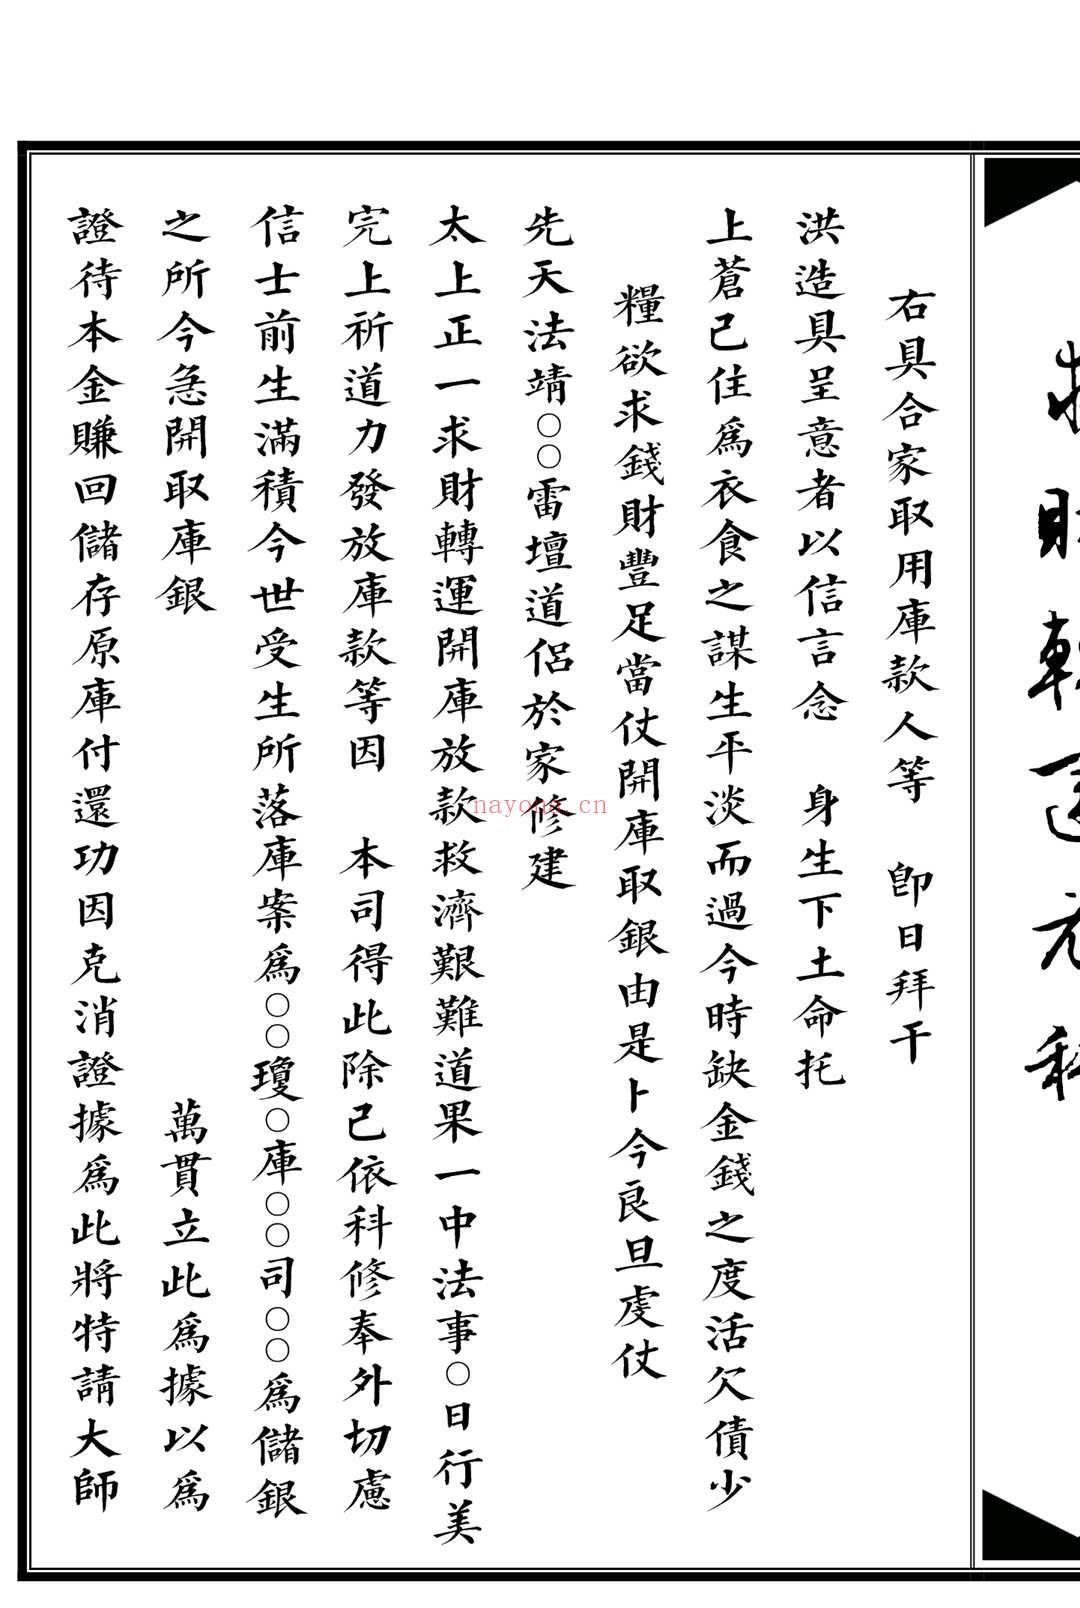 財轉運
右具合家取用庫款人等　卽日拜干
洪造具呈意者以信言念　身生下土命托
上蒼已住爲衣食之謀生平淡而過今時缺金錢之度活欠債少
糧欲求錢財豐足當仗開庫取銀由是卜今良旦虔仗
先天法靖○○雷壇道侶於家修建
太上正一求財轉運開庫放款救濟艱難道果一中法事○日行美
完上祈道力發放庫款等因　本司得此除已依科修奉外切慮
信士前生滿積今世受生所落庫案爲○○瓊○庫○○司○○爲儲銀
之所今急開取庫銀　萬貫立此爲據以爲
證待本金賺回儲存原庫付還功因克消證據爲此將特請大師
nayona.cn